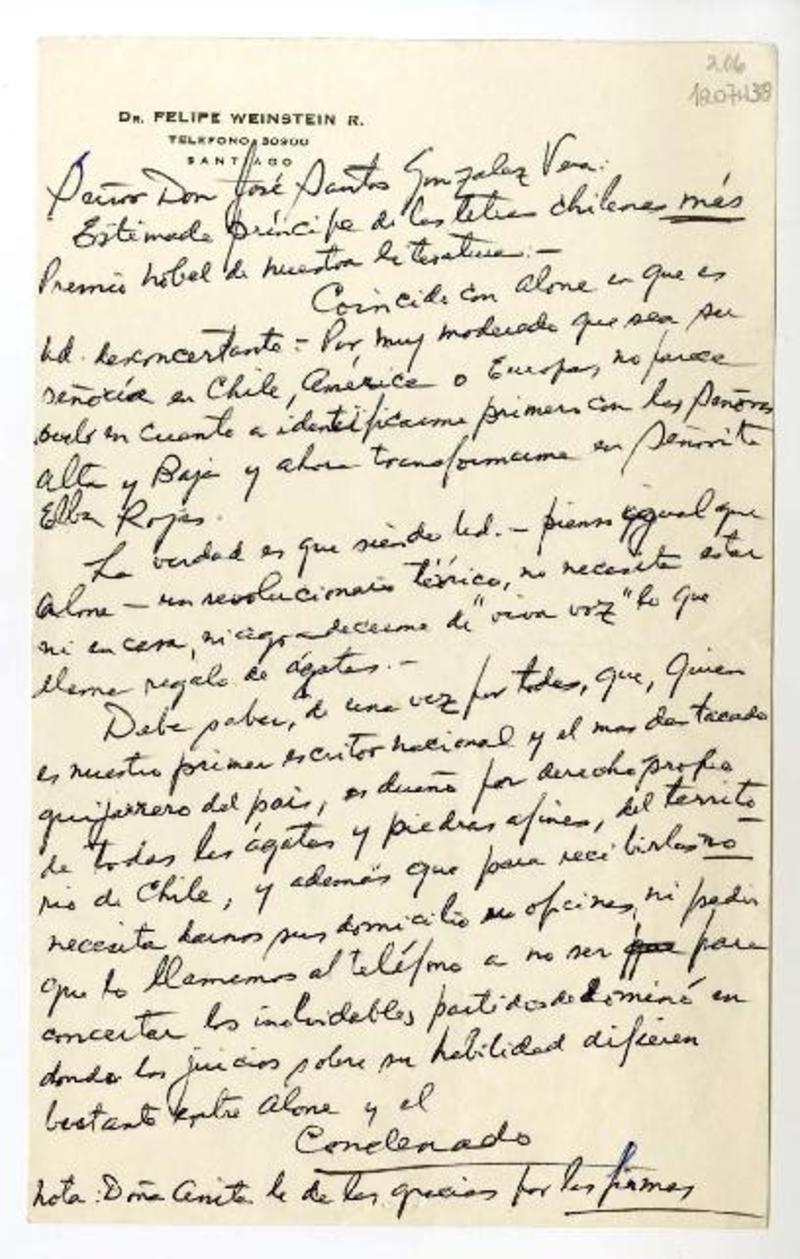 206
1207438
DR. FELIPE WEINSTEIN R.
TELEFONO 30900
SANTIAGO
Señor Don José Santos Gonzalez Vera:
Estimado príncipe de las letras chilenas más
Premio nobel de nuestra literatura.—
Coincido con Alone en que es
Ud. desconcertante.- Por muy moderado que sea su
señoría en Chile, América o Europa, no parece
en cuanto a identificarme primero con las Señoras
Alta y Baja y ahora transformarme en Señorita
Elba Rojas.
La verdad es que siendo Ud. — pienso igual que
Alone — un revolucionario teórico, no necesita estar
ni en casa, ni agradecerme de "viva voz" lo que
llama regalo de ágatas.—
Debe saber, de una vez por todas, que, quien
es nuestro primer escritor nacional y el mas destacado
guijarrero del país, es dueño por derecho propio
de todas las ágatas y piedras afines, del territo
rio de Chile, y además que para recibirlas no
necesita darnos sus domicilio u oficinas, ni pedir
que lo llamemos al teléfono a no ser para
concertar los inolvidables partidos de dominó en
donde los juicios sobre su habilidad difieren
bastante entre Alone y el
Condenado
Nota: Doña Anita le da las gracias por las firmas